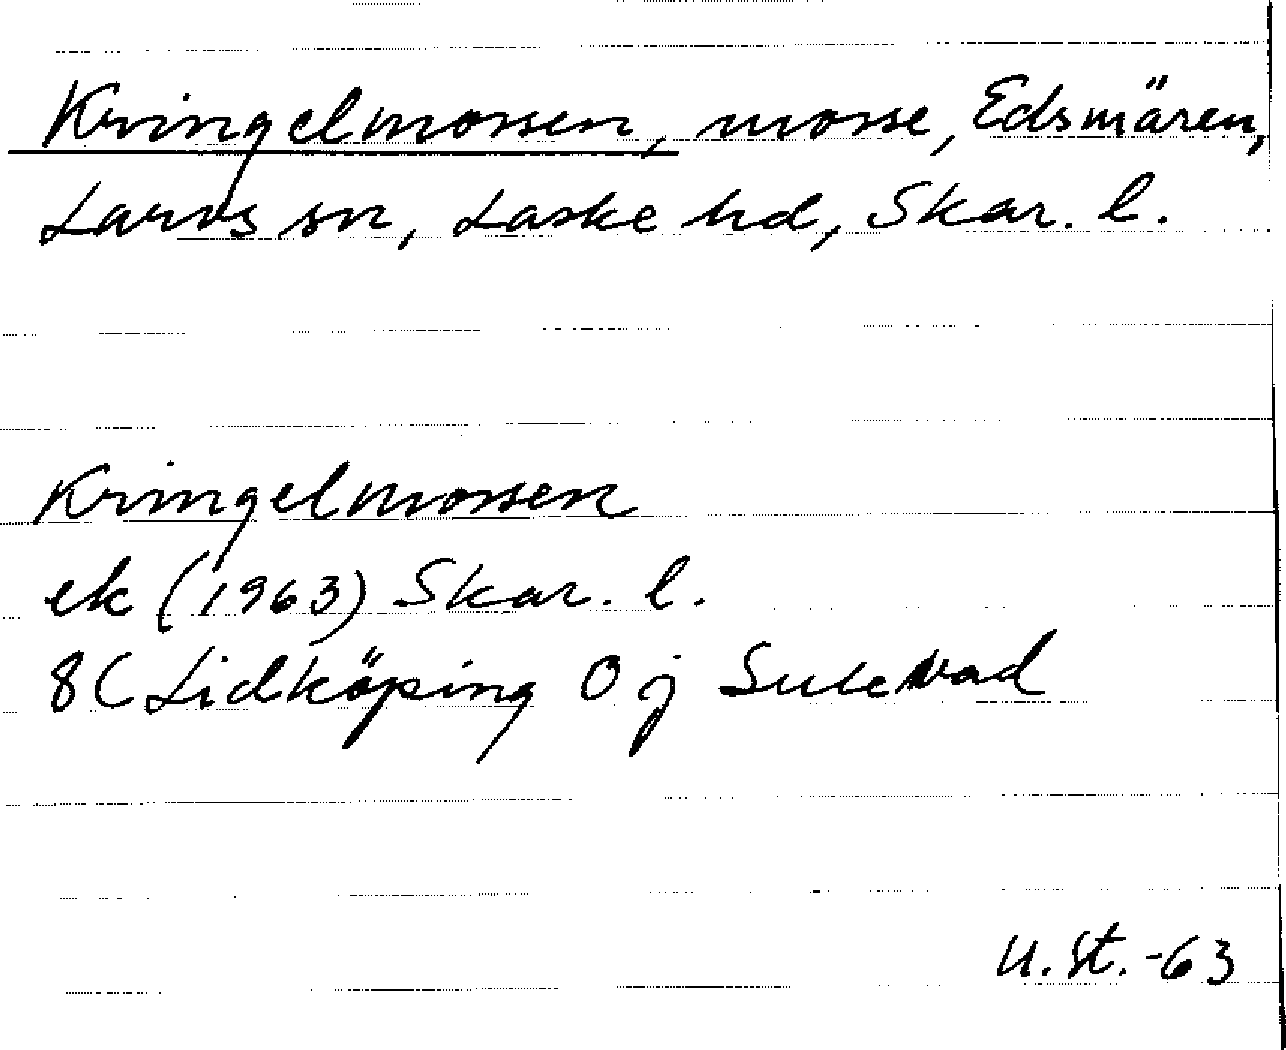 Kringelmossen, mosse, Edsmären,
Larvs sn, Laske hd, Skar. l.
Kringelmossen
ek (1963) Skar. l.
8C Lidköping 0j Sulevad
U. St. -63